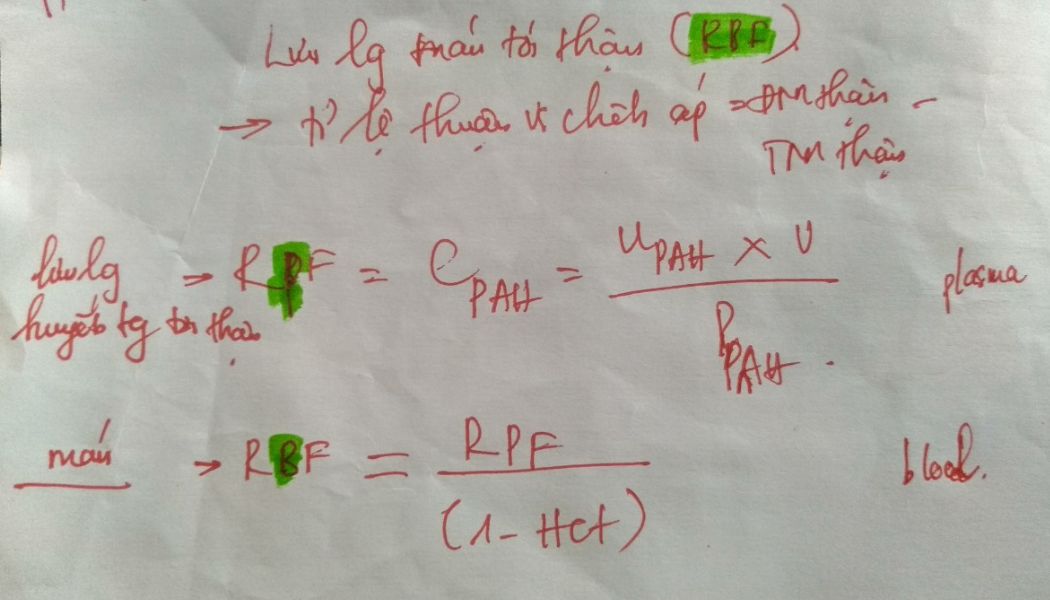 Lưu lg máu tới thận (RBF)
→ tỉ lệ thuận vs chênh áp = ĐM thận -
TM thận
lưu lg
huyết tg tới thận → RPF = C PAH = U PAH × V / P PAH . plasma
máu → RBF = RPF / (1 - Hct) blood.